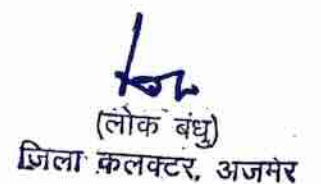 (लोक बंधु)
ज़िला कलक्टर, अजमेर